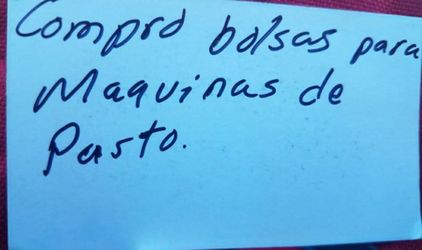 Compro bolsas para
Maquinas de
Pasto.